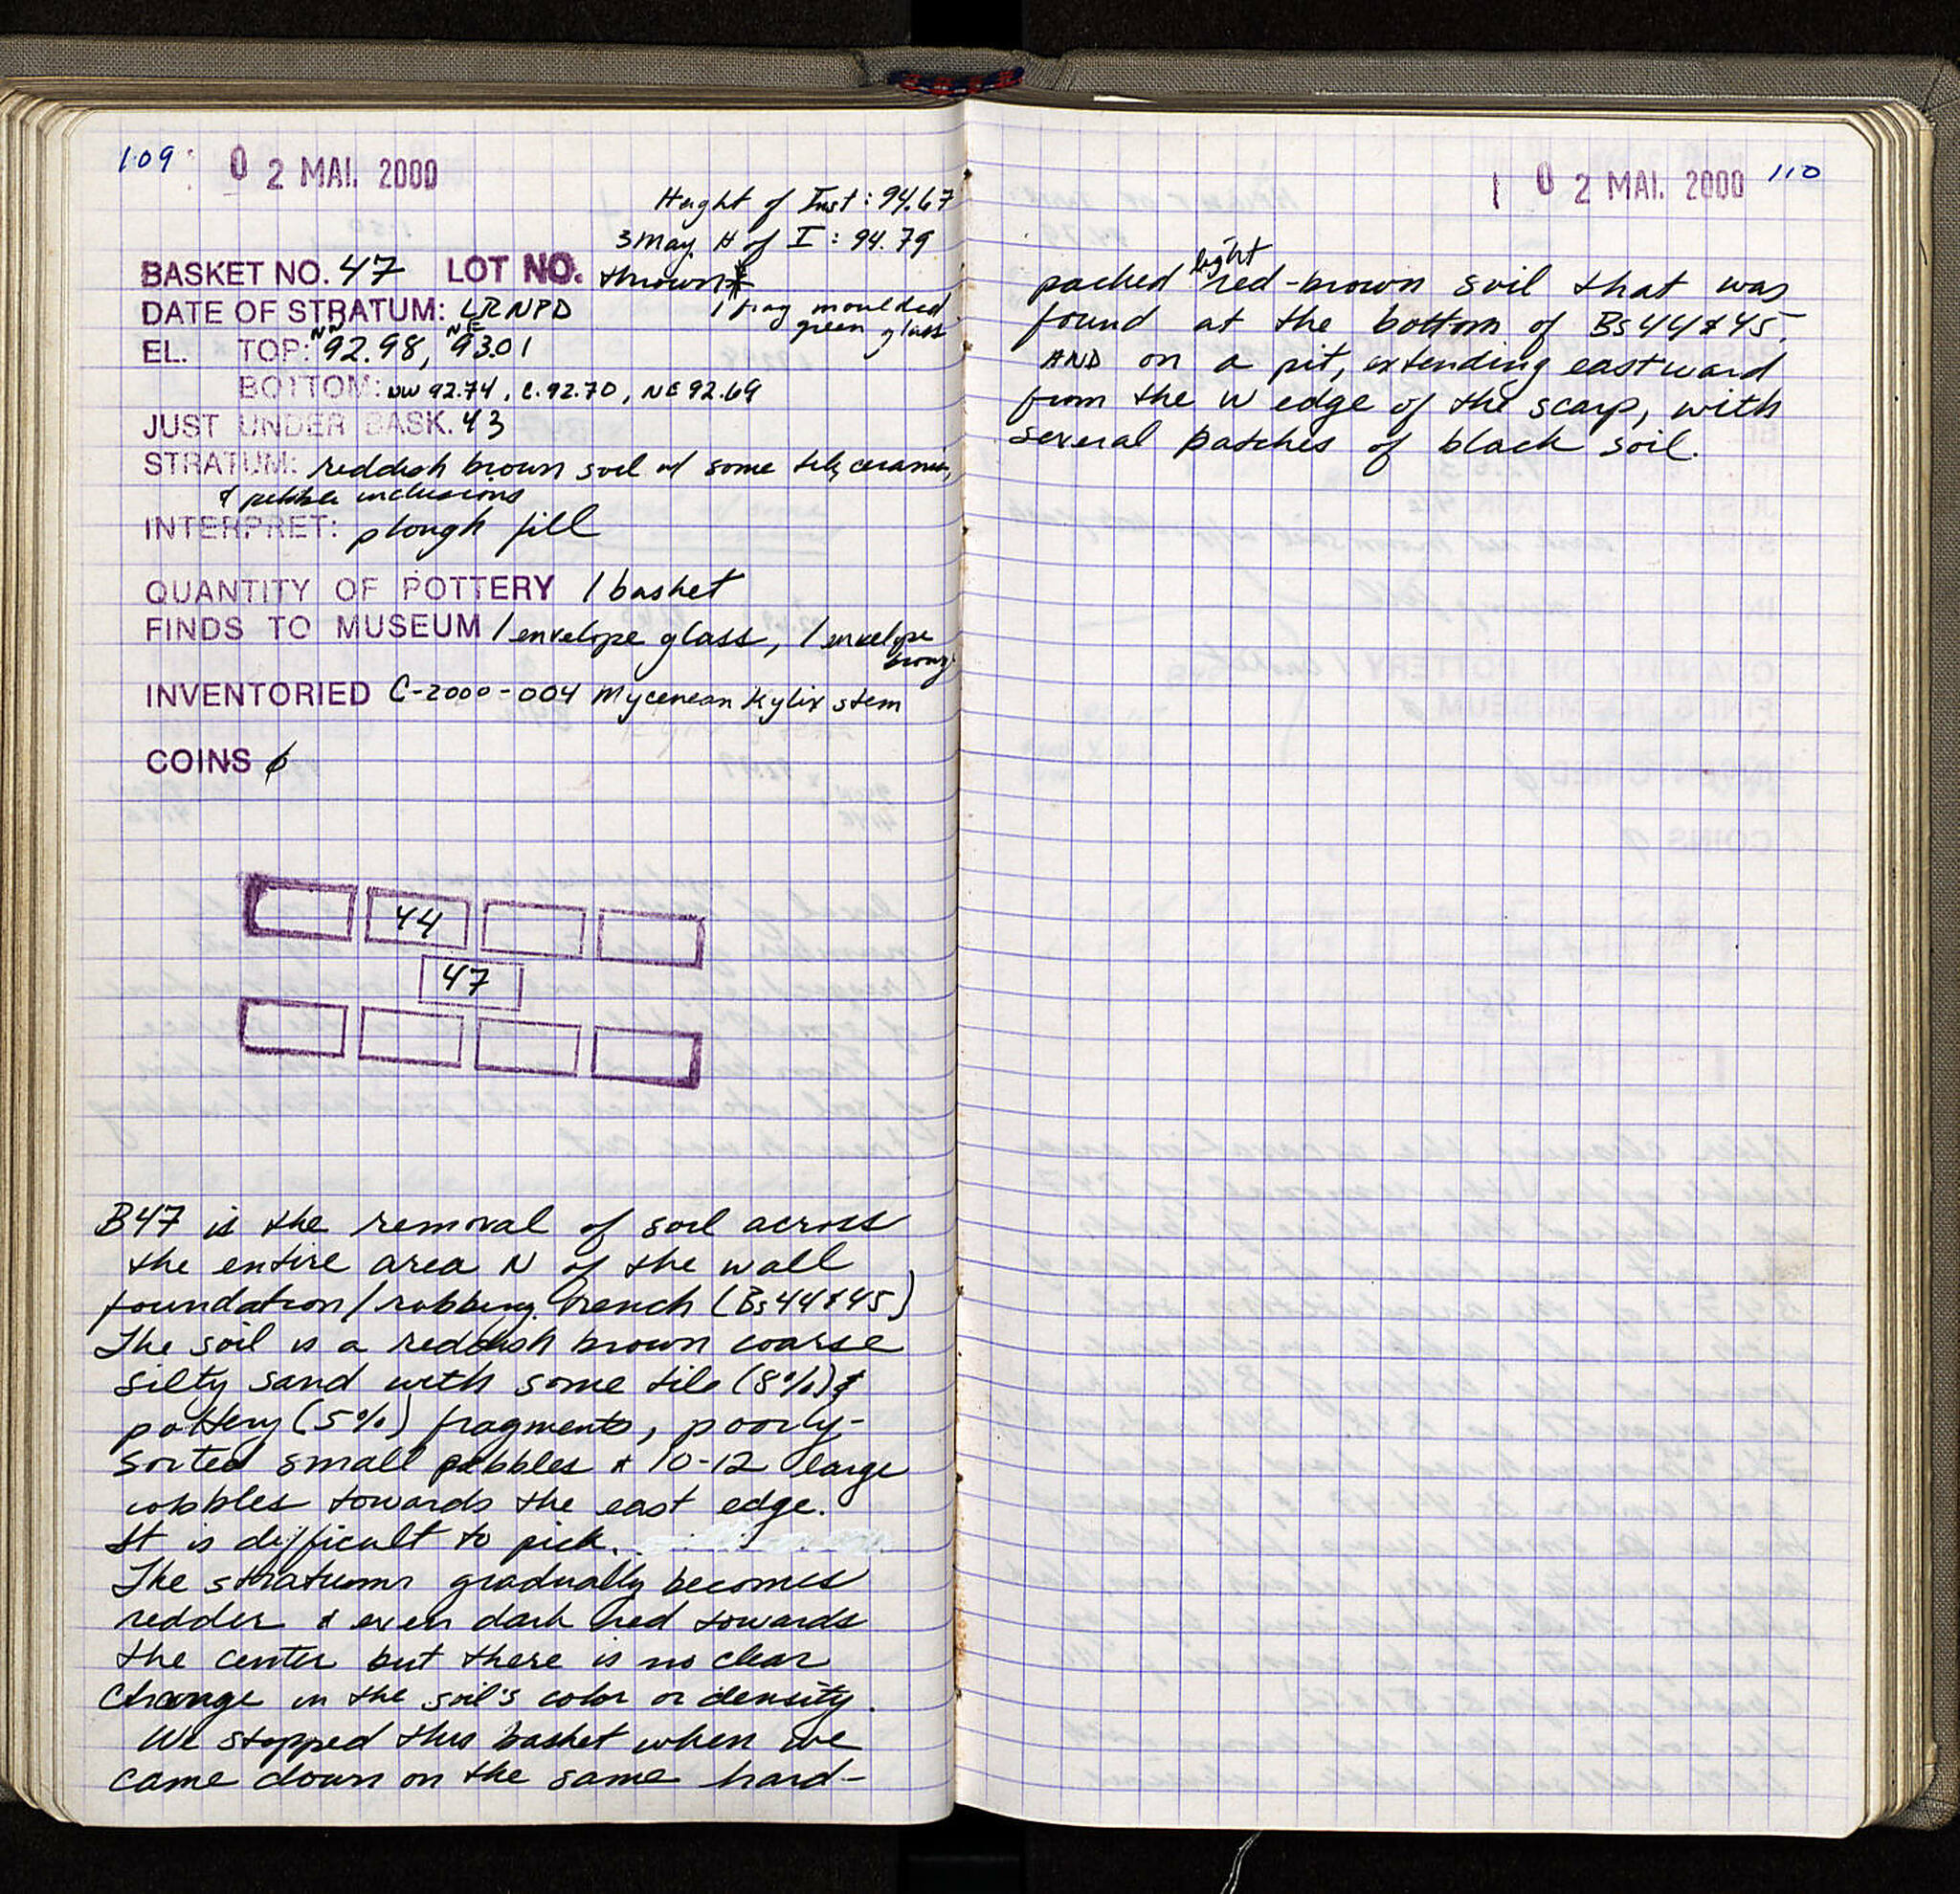 109
0 2 MAI. 2000
Height of Inst: 94.67
3 May. H of I: 94.79
BASKET NO. 47 LOT NO. thrown*
DATE OF STRATUM: LRNPD
1 frag moulded
green glass
EL. TOP: NW 92.98, NE 93.01
BOTTOM: NW 92.74, C. 92.70, NE 92.69
JUST UNDER BASK. 43
STRATUM: reddish brown soil w/ some tile, ceramic,
& pebble inclusions
INTERPRET: plough fill
QUANTITY OF POTTERY 1 basket
FINDS TO MUSEUM 1 envelope glass, 1 envelope
bronz
INVENTORIED C-2000-004 Mycenean Kylix stem
COINS ∅
44
47
B47 is the removal of soil across
the entire area N of the wall
foundation/robbing trench (Bs 44 & 45)
The soil is a reddish brown coarse
silty sand with some tile (8%) &
pottery (5%) fragments, poorly-
sorted small pebbles & 10-12 large
cobbles towards the east edge.
It is difficult to pick.
The stratum gradually becomes
redder & even dark red towards
the center but there is no clear
change in the soil's color or density.
We stopped this basket when we
came down on the same hard-
1 0 2 MAI. 2000
110
packed light red-brown soil that was
found at the bottom of Bs 44 & 45,
AND on a pit, extending eastward
from the W edge of the scarp, with
several patches of black soil.